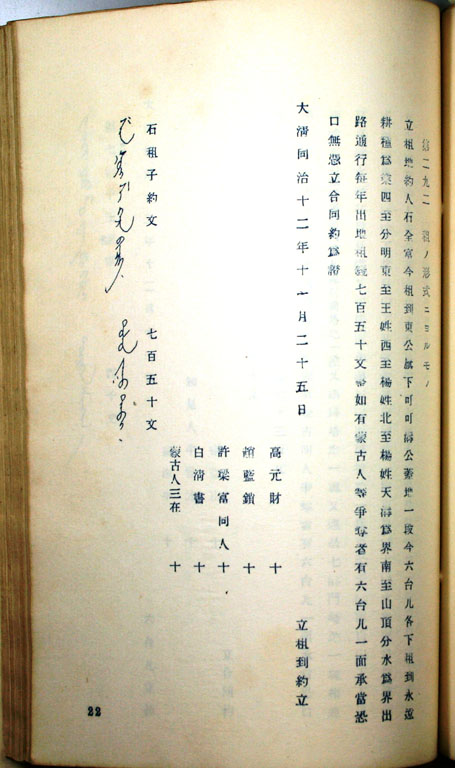 第二九二 租ノ形式ニヨルモノ
立租地約人石全富今租到東公旗下可可溝公 地一段今六台儿各下租到永遠
耕種為業四至分明東至王姓西至楊姓北至楊姓天溝為界南至山頂分水為界出
路通行每年出地租錢七百五十文 如有蒙古人等爭奪者有六台儿一面承當恐
口無憑立合同約為證
大清同治十二年十一月二十五日 立租到約立
高元財 十
趙藍鎖 十
許梁富同人 十
白清書 十
蒙古人三在 十
石租子約文 七百五十文
22